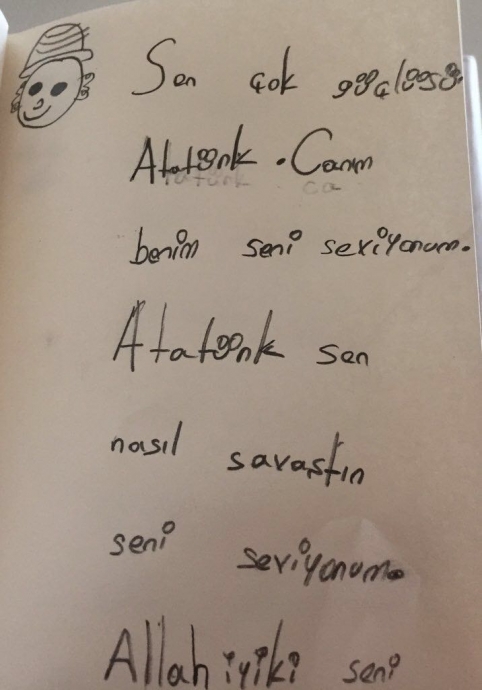 Sen çok güçlüsü
Atatürk. Canım
benim seni seviyorum.
Atatürk sen
nasıl savaştın
seni seviyorum.
Allah iyiki seni